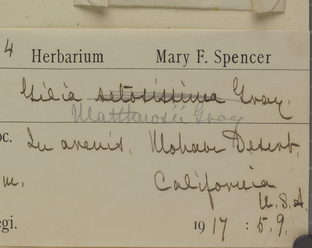 4 Herbarium Mary F. Spencer
Gilia setosissima Gray.
Matthewsii Gray
oc. In arenis. Mohave Desert.
m. California
U.S.A.
egi. 1917 : 5.9.